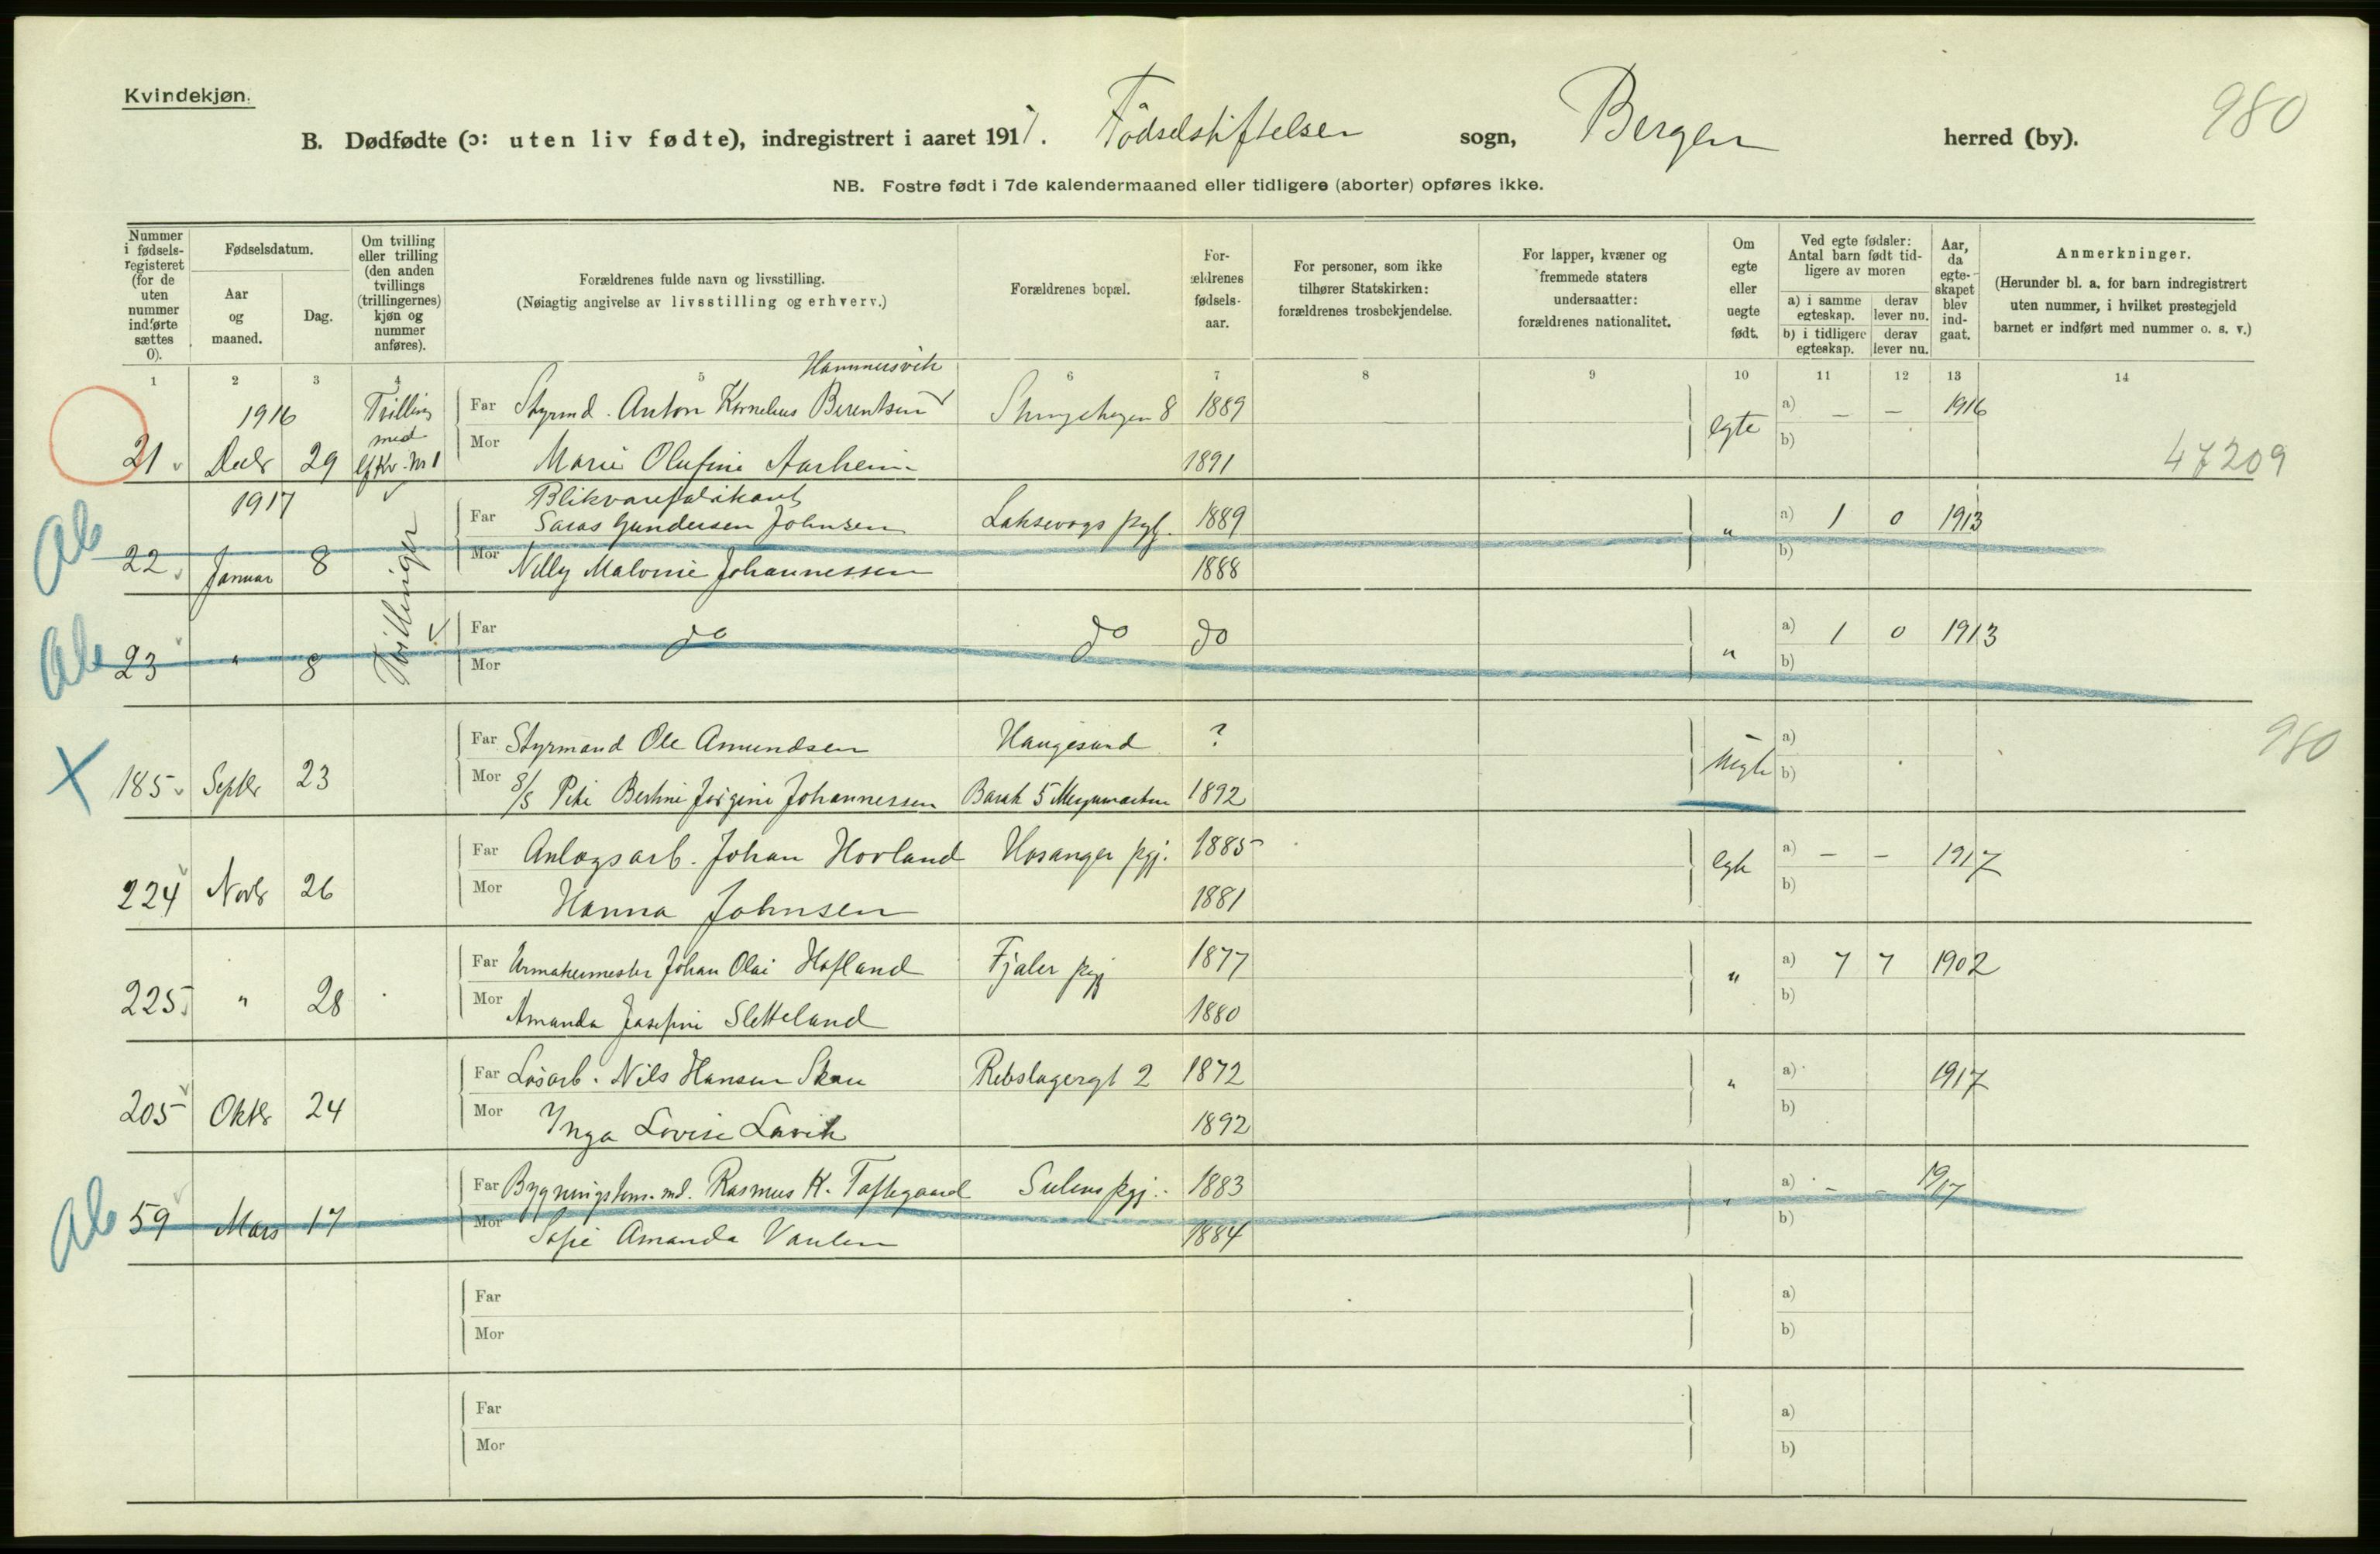 Kvindekjøn.
980
B. Dødfødte (ɔ: uten liv fødte), indregistrert i aaret 1917. Fødselstiftelsen sogn, Bergen herred (by).
NB. Fostre født i 7de kalendermaaned eller tidligere (aborter) opføres ikke.
Nummer i fødselsregisteret (for de uten nummer indførte sættes 0).
Fødselsdatum.
Aar og maaned.
Dag.
Om tvilling eller trilling (den anden tvillings (trillingernes) kjøn og nummer anføres).
Forældrenes fulde navn og livsstilling.
(Nøiagtig angivelse av livsstilling og erhverv.)
Forældrenes bopæl.
Forældrenes fødselsaar.
For personer, som ikke tilhører Statskirken: forældrenes trosbekjendelse.
For lapper, kvæner og fremmede staters undersaatter: forældrenes nationalitet.
Om egte eller uegte født.
Ved egte fødsler: Antal barn født tidligere av moren
a) i samme egteskap. derav lever nu.
b) i tidligere egteskap. derav lever nu.
Aar, da egteskapet blev indgaat.
Anmerkninger.
(Herunder bl. a. for barn indregistrert uten nummer, i hvilket prestegjeld barnet er indført med nummer o. s. v.)
1 2 3 4 5 6 7 8 9 10 11 12 13 14
Hammersvik
1916 Trilling Far Styrmd. Anton Kornelius Berentsen 8 1889 a) — — 1916
med
21 Decbr 29 Nr 1 Mor Marie Olufine Aarheim 1891 egte b)
47209
1917 Blikvarefabrikant
Far Gundersen Johnsen Laksevogs pgj. 1889 a) 1 0 1913
Ab 22 Januar 8 Tvillinger Mor Nelly Malvine Johannessen 1888 " b)
Far do do do a) 1 0 1913
Ab 23 " 8 Mor " b)
Far Styrmand Ole Amundsen Haugesund ? a)
980
X 185 Septbr 23 Mor Bertine Jørgine Johannessen Barak 5 1892 uegte b)
Far Anlægsarb. Johan Hovland Hosanger pgj. 1885 a) — — 1917
224 Novbr 26 Mor Hanna Johnsen 1881 egte b)
Far Urmakermester Johan Olai Hofland Fjaler pgj 1877 a) 7 7 1902
225 " 28 Mor Amanda Josefine Sletteland 1880 " b)
Far Løsarb. Nils Hansen Skau Rebslagergt 2 1872 a) 1917
205 Oktbr 24 Mor Inga Lovise Lavik 1892 " b)
Far Rasmus K. Taftegaard Sulens pgj. 1883 a) — — 1917
Ab 59 Mars 17 Mor Sofie Amanda 1884 " b)
Far a)
Mor b)
Far a)
Mor b)